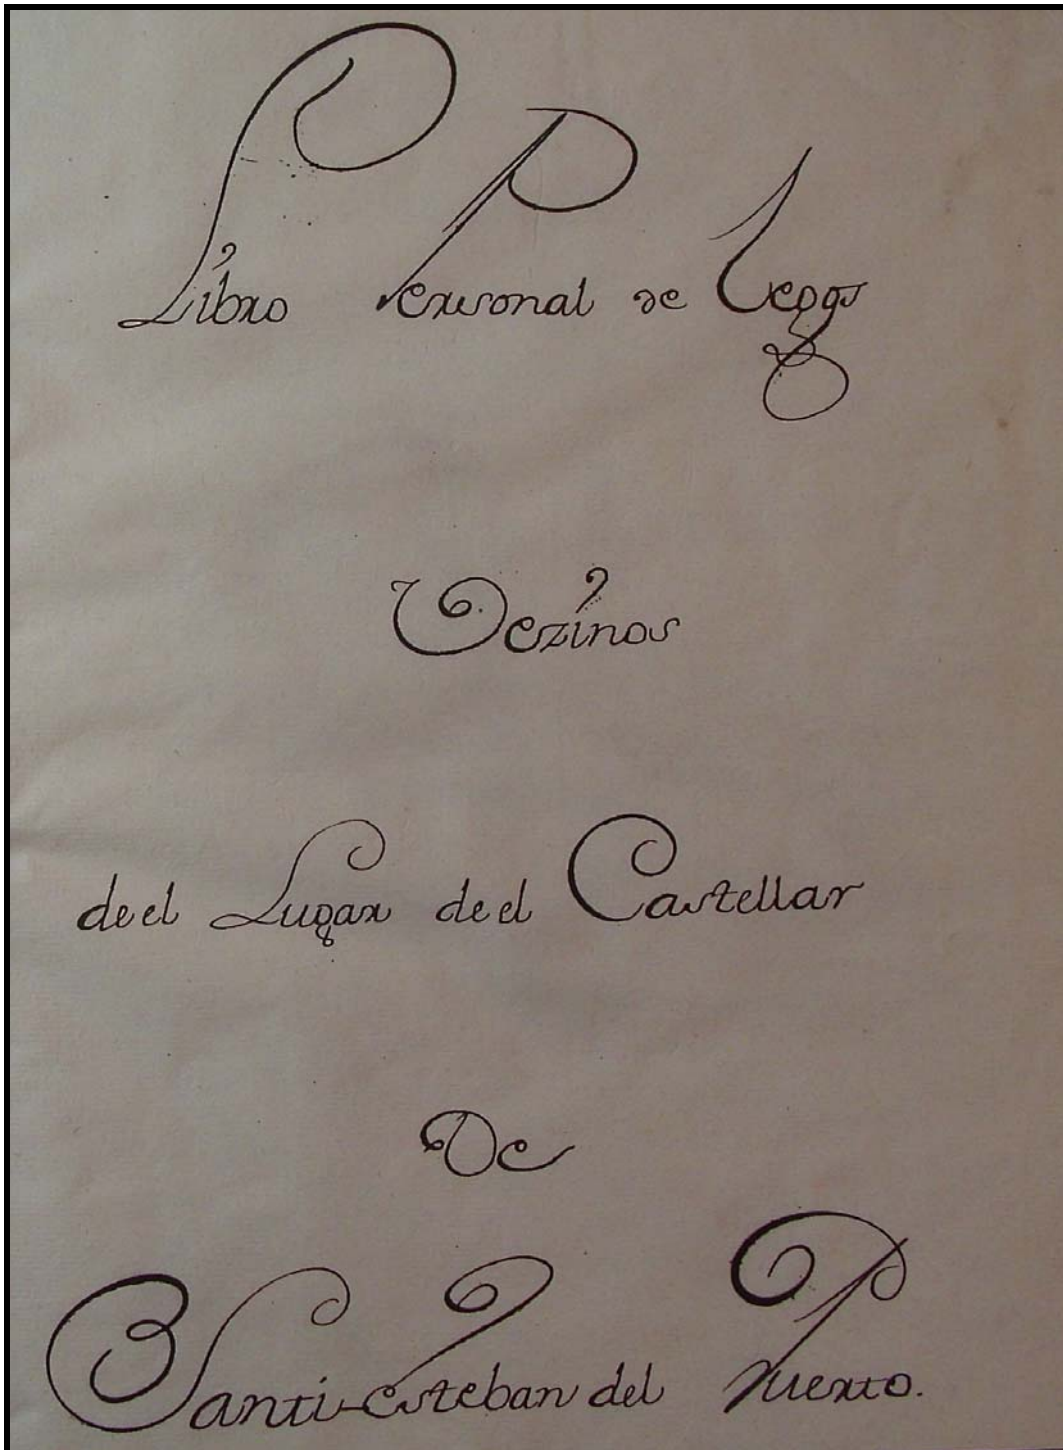 Libro Personal de Legos
Vezinos
de el Lugar de el Castellar
De
Santi-esteban del Puerto.